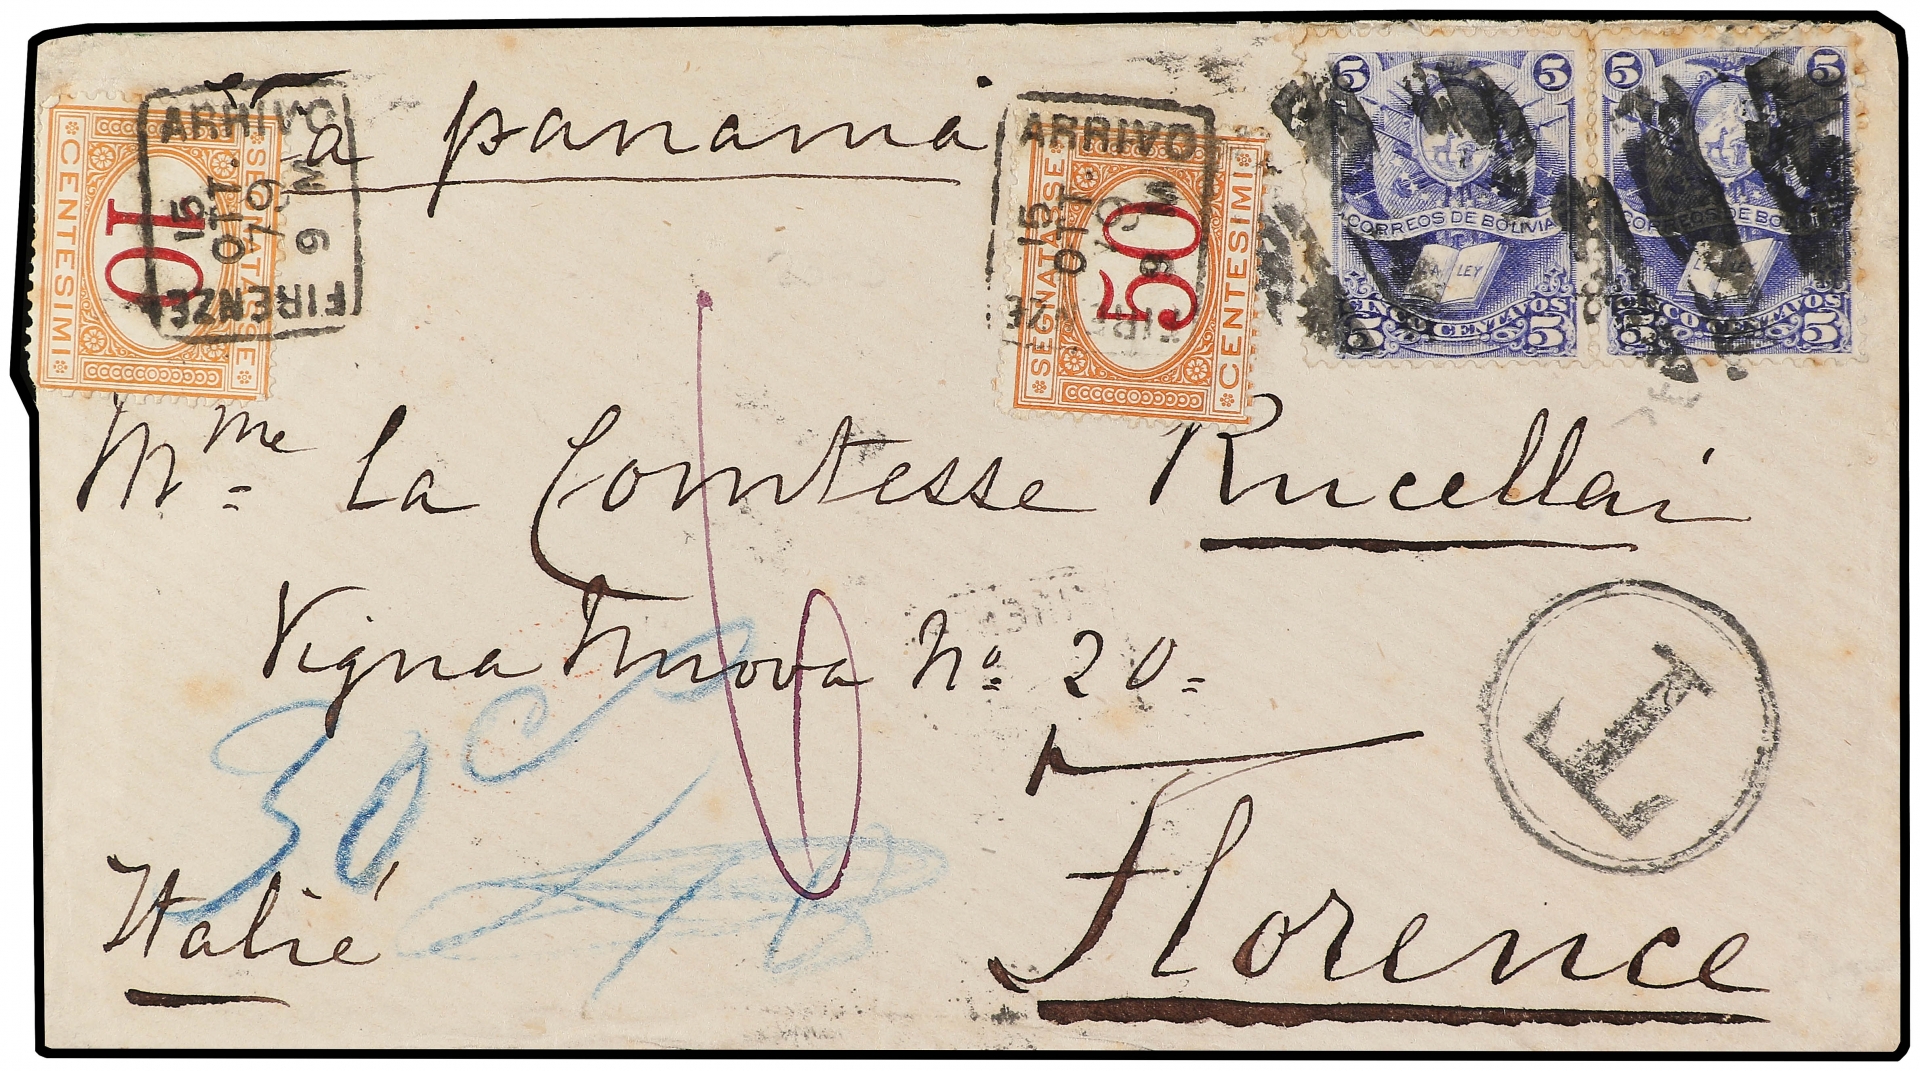 Via panama
Mme La Comtesse Rucellai
Vigna Nuova No 20
Florence
Italié
30 c
T
ARRIVO
15
OTT.
79
9 M
FIRENZE
SEGNATASSE
10
CENTESIMI
ARRIVO
15
OTT.
79
9 M
FIRENZE
SEGNATASSE
50
CENTESIMI
5 5
CORREOS DE BOLIVIA
LA LEY
CINCO CENTAVOS
5 5
5 5
CORREOS DE BOLIVIA
LA LEY
CINCO CENTAVOS
5 5